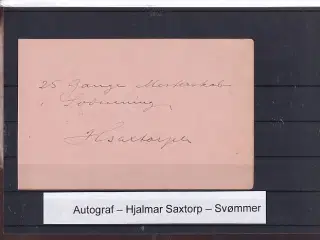 25 Gange Mesterskab
i Svømning
HSaxtorph
Autograf – Hjalmar Saxtorp – Svømmer